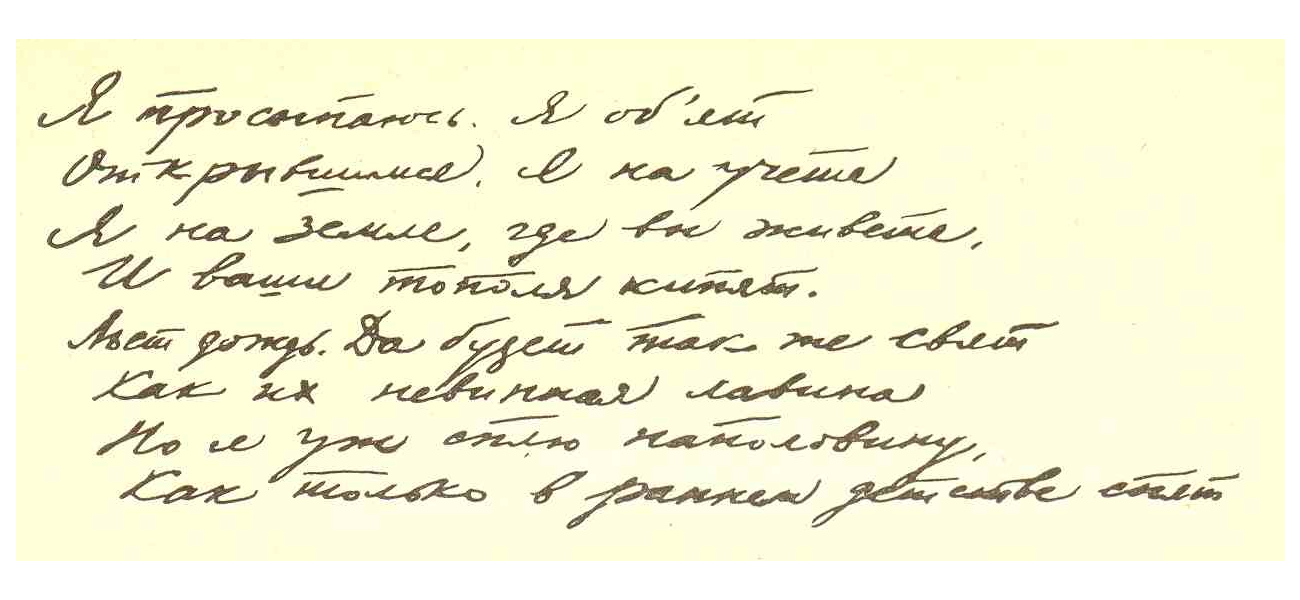 Я просыпаюсь. Я об'ят
Открывшимся. Я на учете
Я на земле, где вы живете,
И ваши тополя кипят.
Льет дождь. Да будет так же свят
Как их невинная лавина
Но я уж сплю наполовину,
Как только в раннем детстве спят